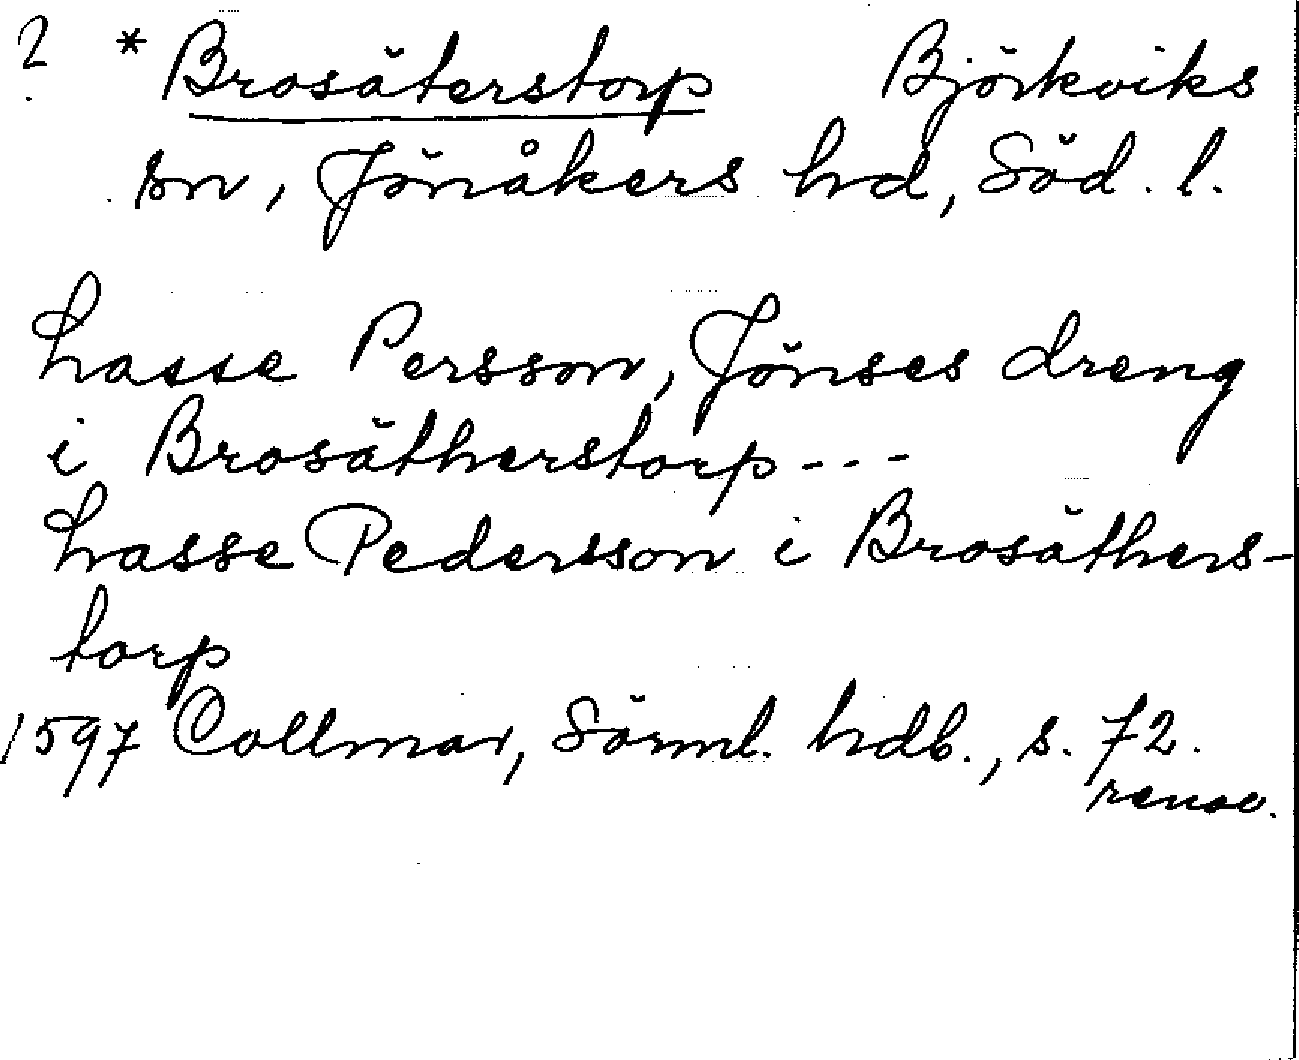 ? * Brosäterstorp Björkviks
sn, Jönåkers hd, Söd. l.
Lasse Persson, Jönses dreng
i Brosätherstorp - - -
Lasse Pedersson i Brosäthers-
torp
1597 Collmar, Sörml. hdb., s. 72.
renov.